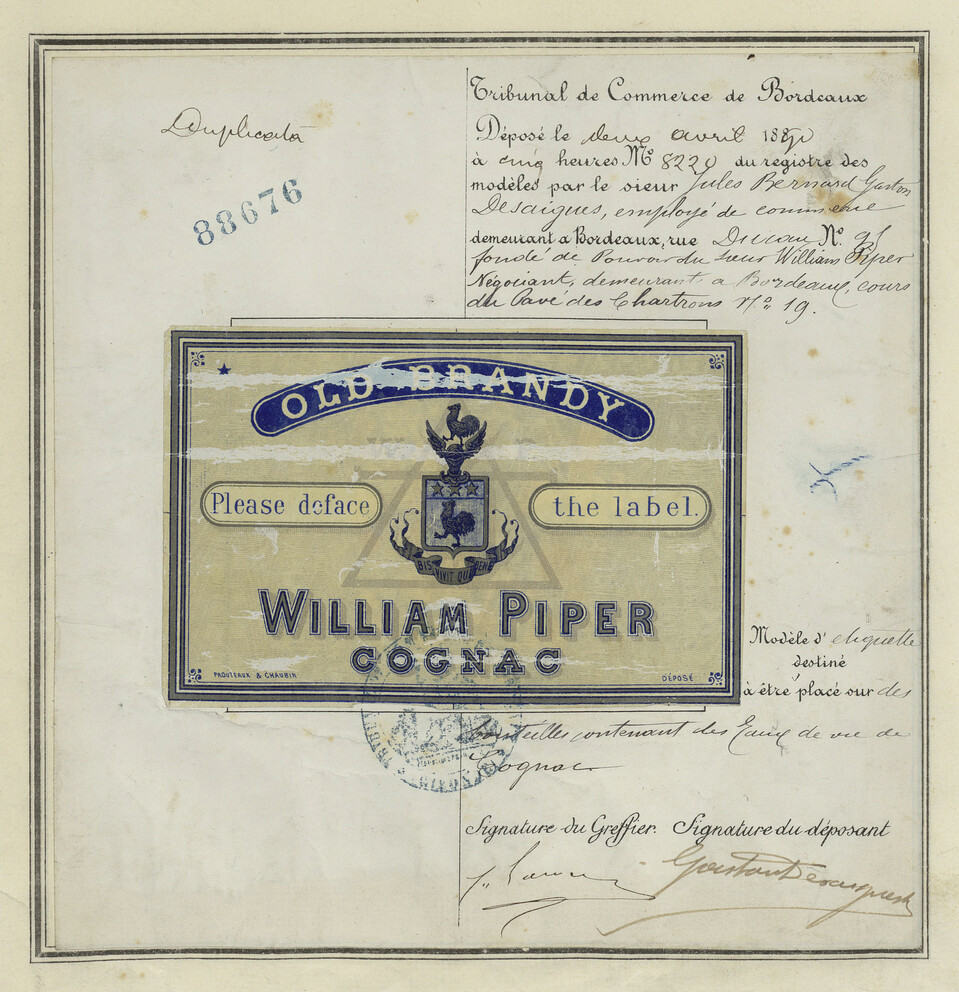 Duplicata
88676
Tribunal de Commerce de Bordeaux
Déposé le deux avril 1880
à cinq heures No 8220 du registre des
modèles par le sieur Jules Bernard Gaston
Desaigues, employé de commerce
demeurant a Bordeaux, rue No.
fondé de Pouvoir du sieur William Piper
Négociant, demeurant a Bordeaux, cours
du Pavé des Chartrons No. 19.
OLD BRANDY
Please deface the label.
BIS VIVIT QUI BENE
WILLIAM PIPER
COGNAC
PROUTEAUX & CHAUBIN
DÉPOSÉ
Modèle d'etiquette
destiné
à être placé sur des
bouteilles contenant des Eaux de vie de
Cognac
Signature du Greffier. Signature du déposant